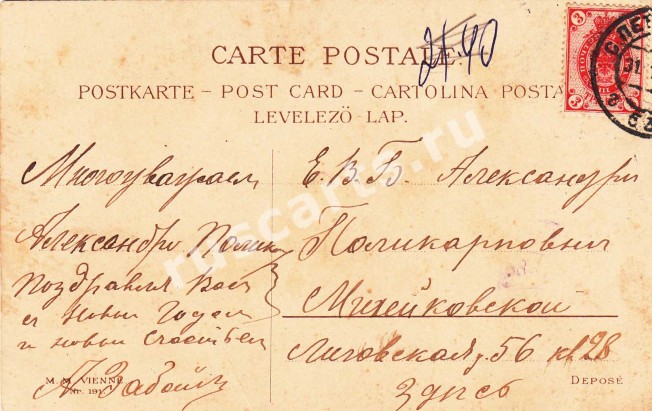 CARTE POSTALE.
21.40
POSTKARTE – POST CARD – CARTOLINA POSTA
LEVELEZÖ-LAP.
Многоуважаем
Александр Полик
Поздравляя Вас
с Новым Годом
и новым счастьем
А. Забой
Е. В. Б. Александр
Поликарпович
Михейковской
Лиговская, 56 кв 28
Здесь
M. M. VIENNE
Nr. 191
DEPOSÉ
3
3
С.ПЕ
31
ruscarta.ru